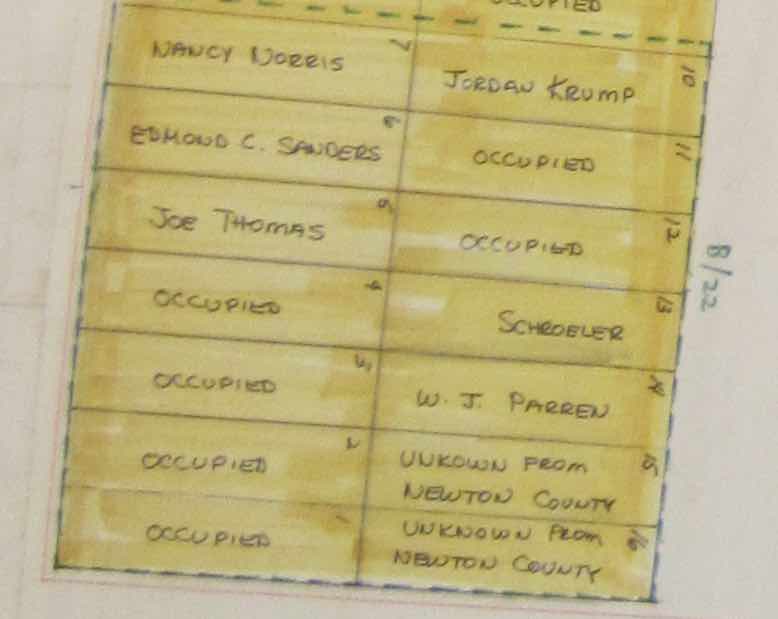 OCCUPIED
NANCY NORRIS 7
JORDAN KRUMP 10
EDMOND C. SANDERS 6
OCCUPIED 11
JOE THOMAS 5
OCCUPIED 12
OCCUPIED 4
SCHROELER 13
OCCUPIED 3
W. J. PARREN 14
OCCUPIED 2
UNKOWN FROM 15
NEWTON COUNTY
OCCUPIED 1
UNKNOWN FROM 16
NEWTON COUNTY
B/22